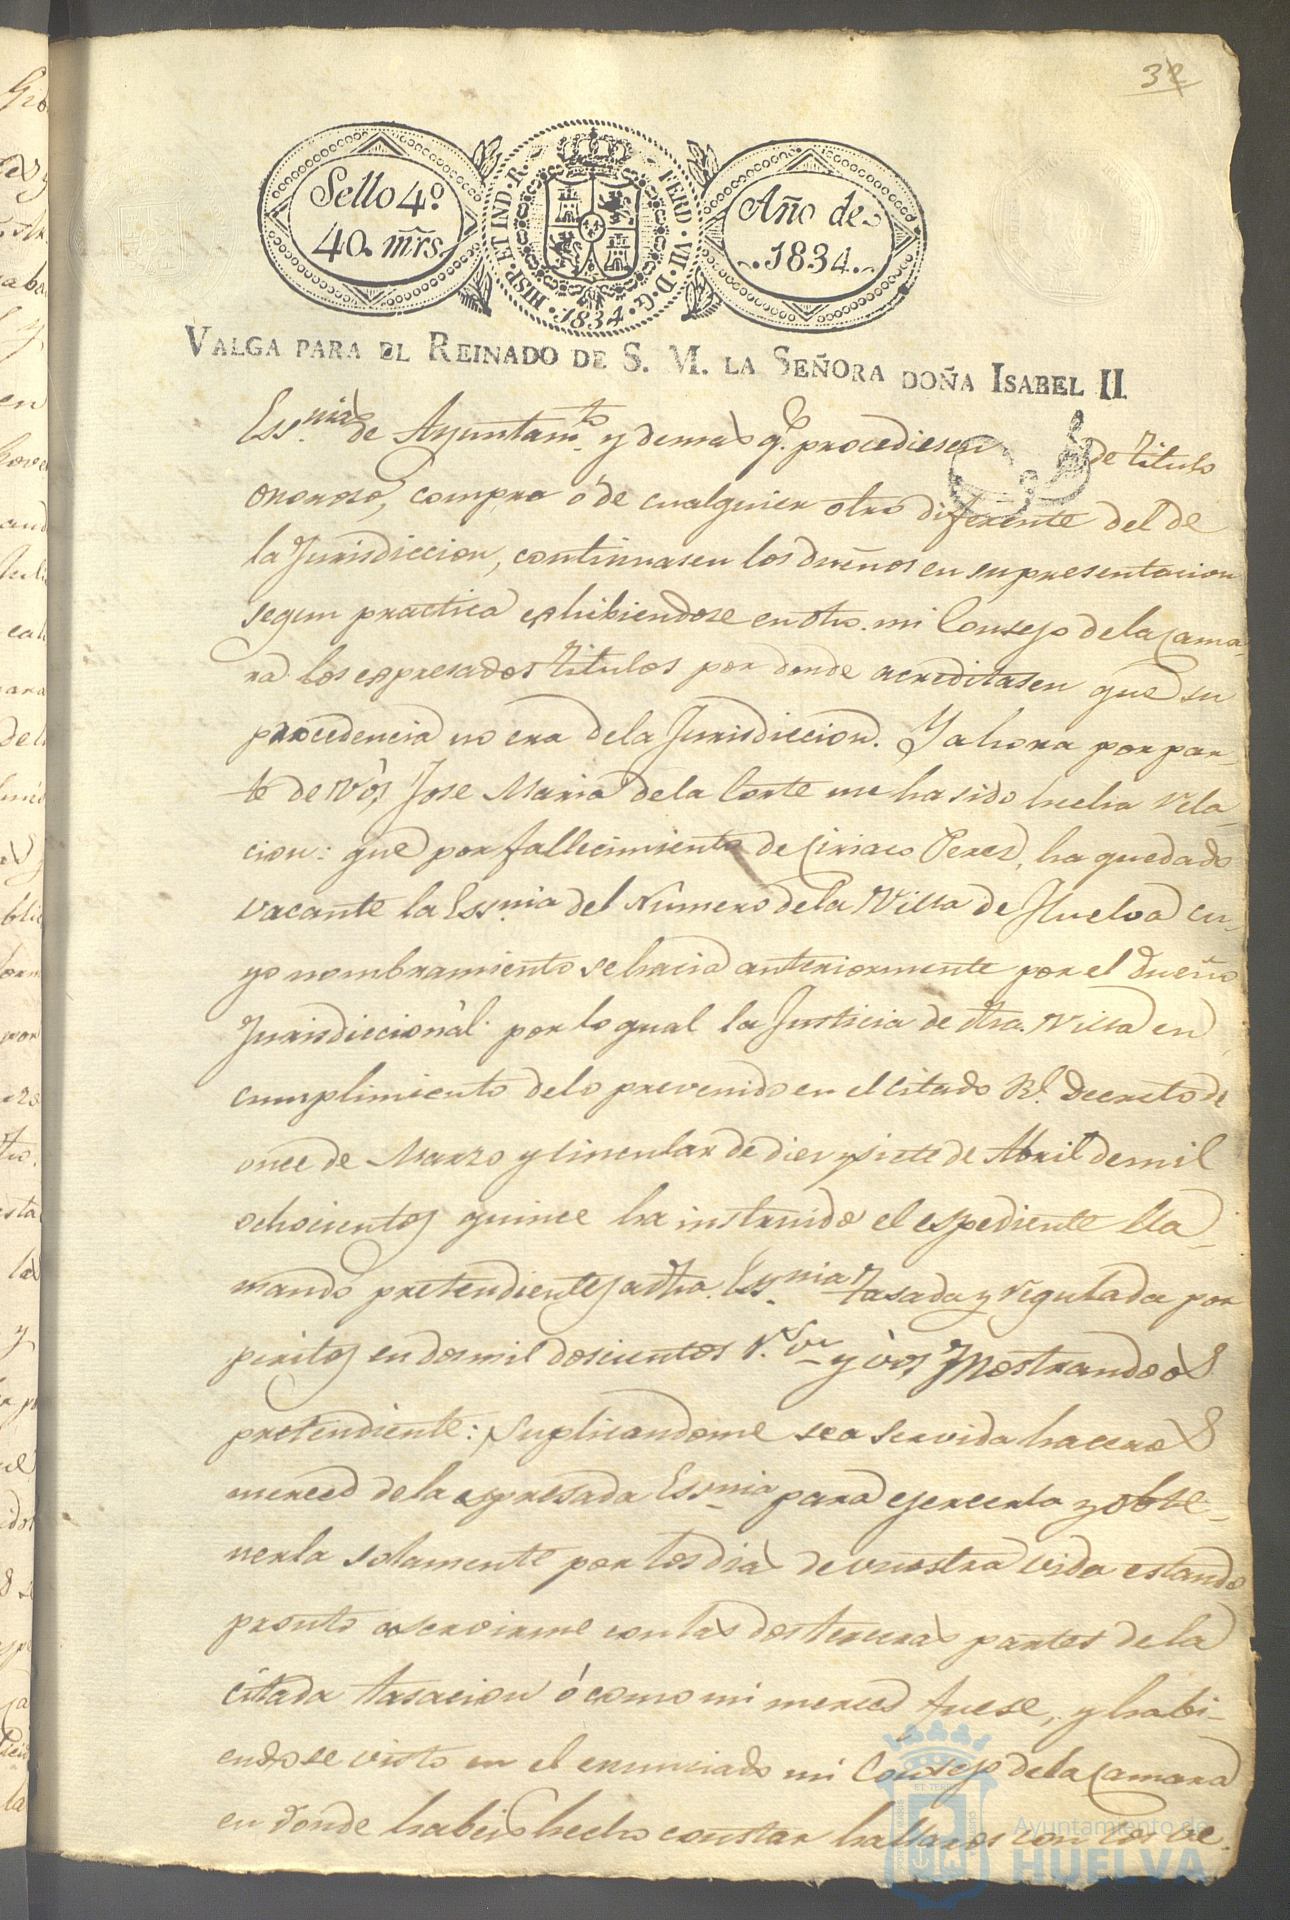 32
Sello 4º
40. mrs
HISP. ET IND. R. FERD. VII. D. G. 1834.
Año de
1834.
VALGA PARA EL REINADO DE S. M. LA SEÑORA DOÑA ISABEL II.
Ess.nias de Ayuntam.to y demas q.e procediesen de titulo
oneroso, compra ó de cualquier otro diferente del de
la Jurisdiccion, continuasen los dueños en su presentacion
segun practica exhibiendose en dho. mi Consejo de la Cama-
ra los espresados titulos por donde acreditasen que su
procedencia no era de la Jurisdiccion. Y ahora por par-
te de vos, Jose Maria de la Corte me ha sido hecha rela-
cion: que por fallecimiento de Ciriaco Perez, ha quedado
vacante la Ess.nia del Numero de la Villa de Huelva cu-
yo nombramiento se hacia anteriormente por el dueño
Jurisdiccional: por lo qual la Justicia de dha. Villa en
cumplimiento de lo prevenido en el citado Rl. Decreto de
once de Marzo y Circular de diez y siete de Abril de mil
ochocientos quince ha instruido el espediente lla-
mando pretendientes a dha. Ess.nia tasada y regulada por
peritos en dos mil doscientos r.s v.n y vos mostrandoos
pretendiente: Suplicandome sea servida haceros
merced de la espresada Ess.nia para ejercerla y obte-
nerla solamente por los dias de vuestra vida estando
pronto a servirme con las dos terceras partes de la
citada tasacion ó como mi merced fuese, y habi-
endose visto en el enunciado mi Consejo de la Camara
en donde habeis hecho constar hallaros con los re-
Ayuntamiento de
HUELVA